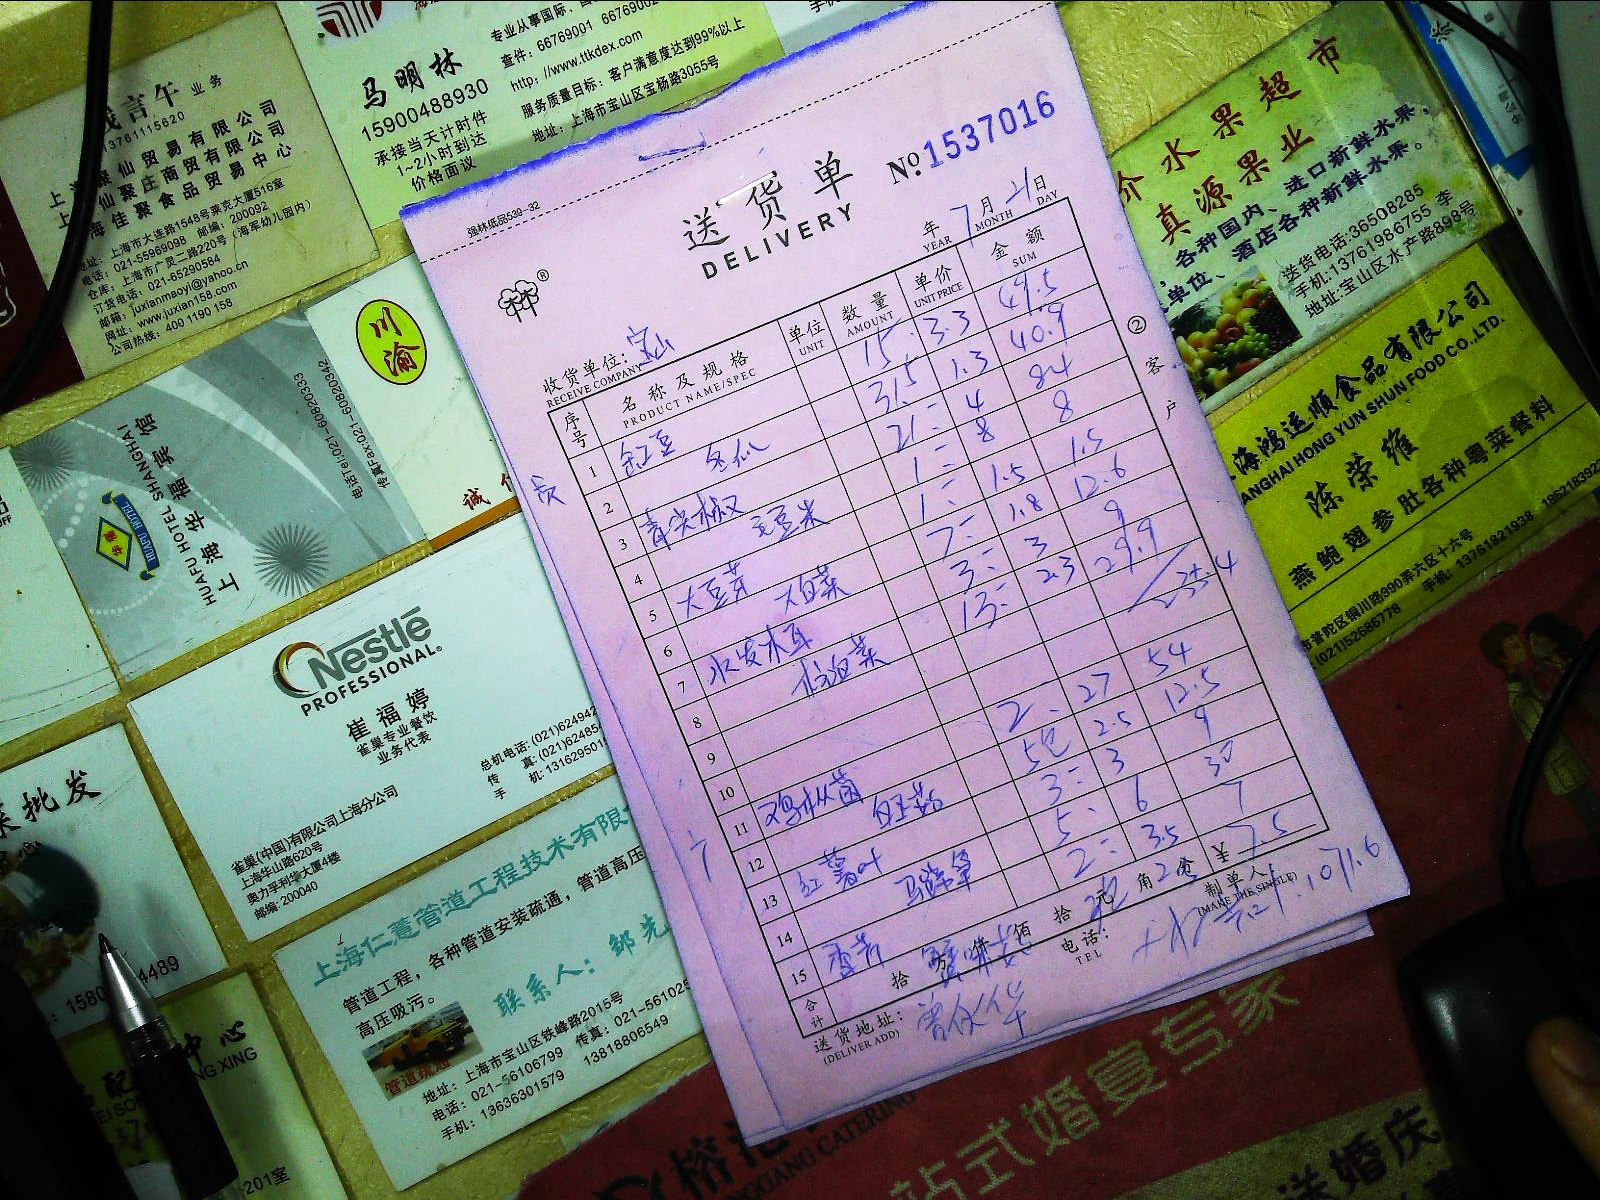 钱言午 业务
13761115620
上海聚仙贸易有限公司
上海仙聚庄商贸有限公司
上海佳聚食品贸易中心
地址:上海市大连路1548号莱克大厦516室
电话:021-55969098 邮编:200092
仓库:上海市广灵二路220号(海军幼儿园内)
订货电话:021-65290584
邮箱:juxianmaoyi@yahoo.cn
网址:www.juxian158.com
公司热线:400 1190 158
马明林
15900488930
承接当天计时件
1~2小时到达
价格面议
专业从事国际、
查件:66769001
http://www.ttkdex.com
服务质量目标:客户满意度达到99%以上
地址:上海市宝山区宝杨路3055号
川渝
诚
上海华福宾馆
HUAFU HOTEL SHANGHAI
电话Tel:021-60820333
传真Fax:021-60820342
Nestlé
PROFESSIONAL
崔福婷
雀巢专业餐饮
业务代表
雀巢(中国)有限公司上海分公司
上海华山路620号
奥力孚利华大厦4楼
邮编:200040
总机电话:(021)62494
传 真:(021)62485
手 机:13162950
菜批发
1580
4489
上海仁慧管道工程技术有限
管道工程,各种管道安装疏通,管道高压
高压吸污。
联系人:邹先
管道疏通
地址:上海市宝山区铁峰路2015号
电话:021-56106799 传真:021-56102
手机:13636301579 13818806549
201室
强林纸品539-32
送货单
DELIVERY
No 1537016
年 7月 21日
YEAR MONTH DAY
林®
收货单位: 宝山
RECEIVE COMPANY
序号 名称及规格 单位 数量 单价 金额
PRODUCT NAME/SPEC UNIT AMOUNT UNIT PRICE SUM
1 豇豆 冬瓜 15 3.3 49.5
2 31.5 1.3 40.9
3 青尖椒 毛豆米 21 4 84
4 1 8 8
5 大豆芽 大白菜 1 1.5 1.5
6 7 1.8 12.6
7 水发木耳 3 3 9
8 13 2.3 29.9
9
10 2 27 54
11 鸡枞菌 白玉菇 5包 2.5 12.5
12 3 3 9
13 红薯叶 马蹄 5 6 30
14 2 3.5 7
15 香芹 7.5
合计 拾 万 仟 佰 拾 元 角 分 ¥
② 客户
送货地址:
(DELIVER ADD)
电话:
TEL
制单人
(MAKE THE SINGLE)
1071.6
价水果超市
真源果业
各种国内、进口新鲜水果,
单位、酒店各种新鲜水果。
送货电话:36508285
手机:13761986755 李
地址:宝山区水产路898号
海鸿运顺食品有限公司
ANGHAI HONG YUN SHUN FOOD CO.,LTD.
陈荣维
燕鲍翅参肚各种粤菜餐料
市普陀区铜川路990弄六区十六号
(021)52685778 手机:13761821938 1862183923
站式婚宴专家
GGANG CATERING
送婚庆